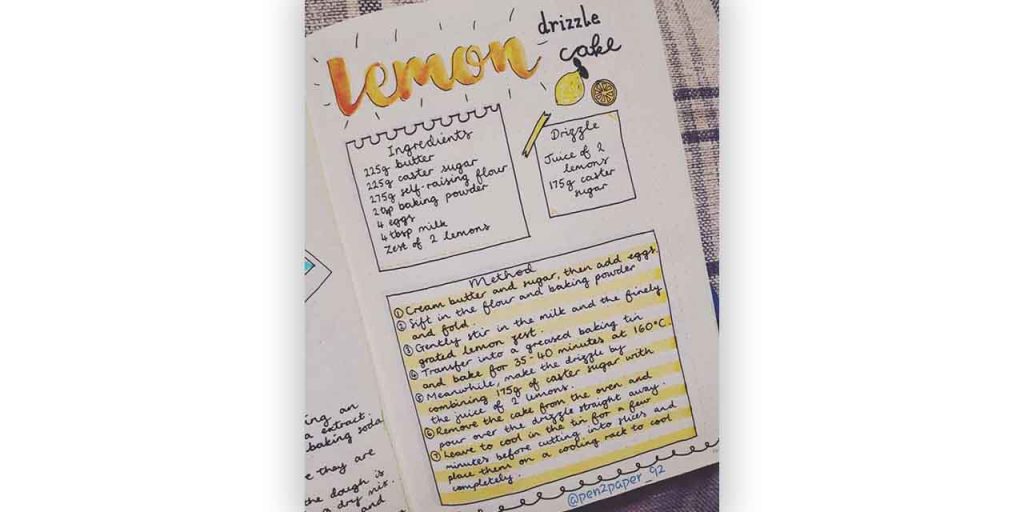 lemon
drizzle
cake
Ingredients
225g butter
225g caster sugar
275g self-raising flour
2tsp baking powder
4 eggs
4 tbsp milk
Zest of 2 lemons
Drizzle
Juice of 2
lemons
175g caster
sugar
Method
① Cream butter and sugar, then add eggs.
② Sift in the flour and baking powder
and fold.
③ Gently stir in the milk and the finely
grated lemon zest.
④ Transfer into a greased baking tin
and bake for 35-40 minutes at 160°C.
⑤ Meanwhile, make the drizzle by
combining 175g of caster sugar with
the juice of 2 lemons.
⑥ Remove the cake from the oven and
pour over the drizzle straight away.
⑦ Leave to cool in the tin for a few
minutes before cutting into slices and
place them on a cooling rack to cool
completely.
@pen2paper_92
ing an
a extract.
baking soda
e they are
the dough is
a dry mix.
and